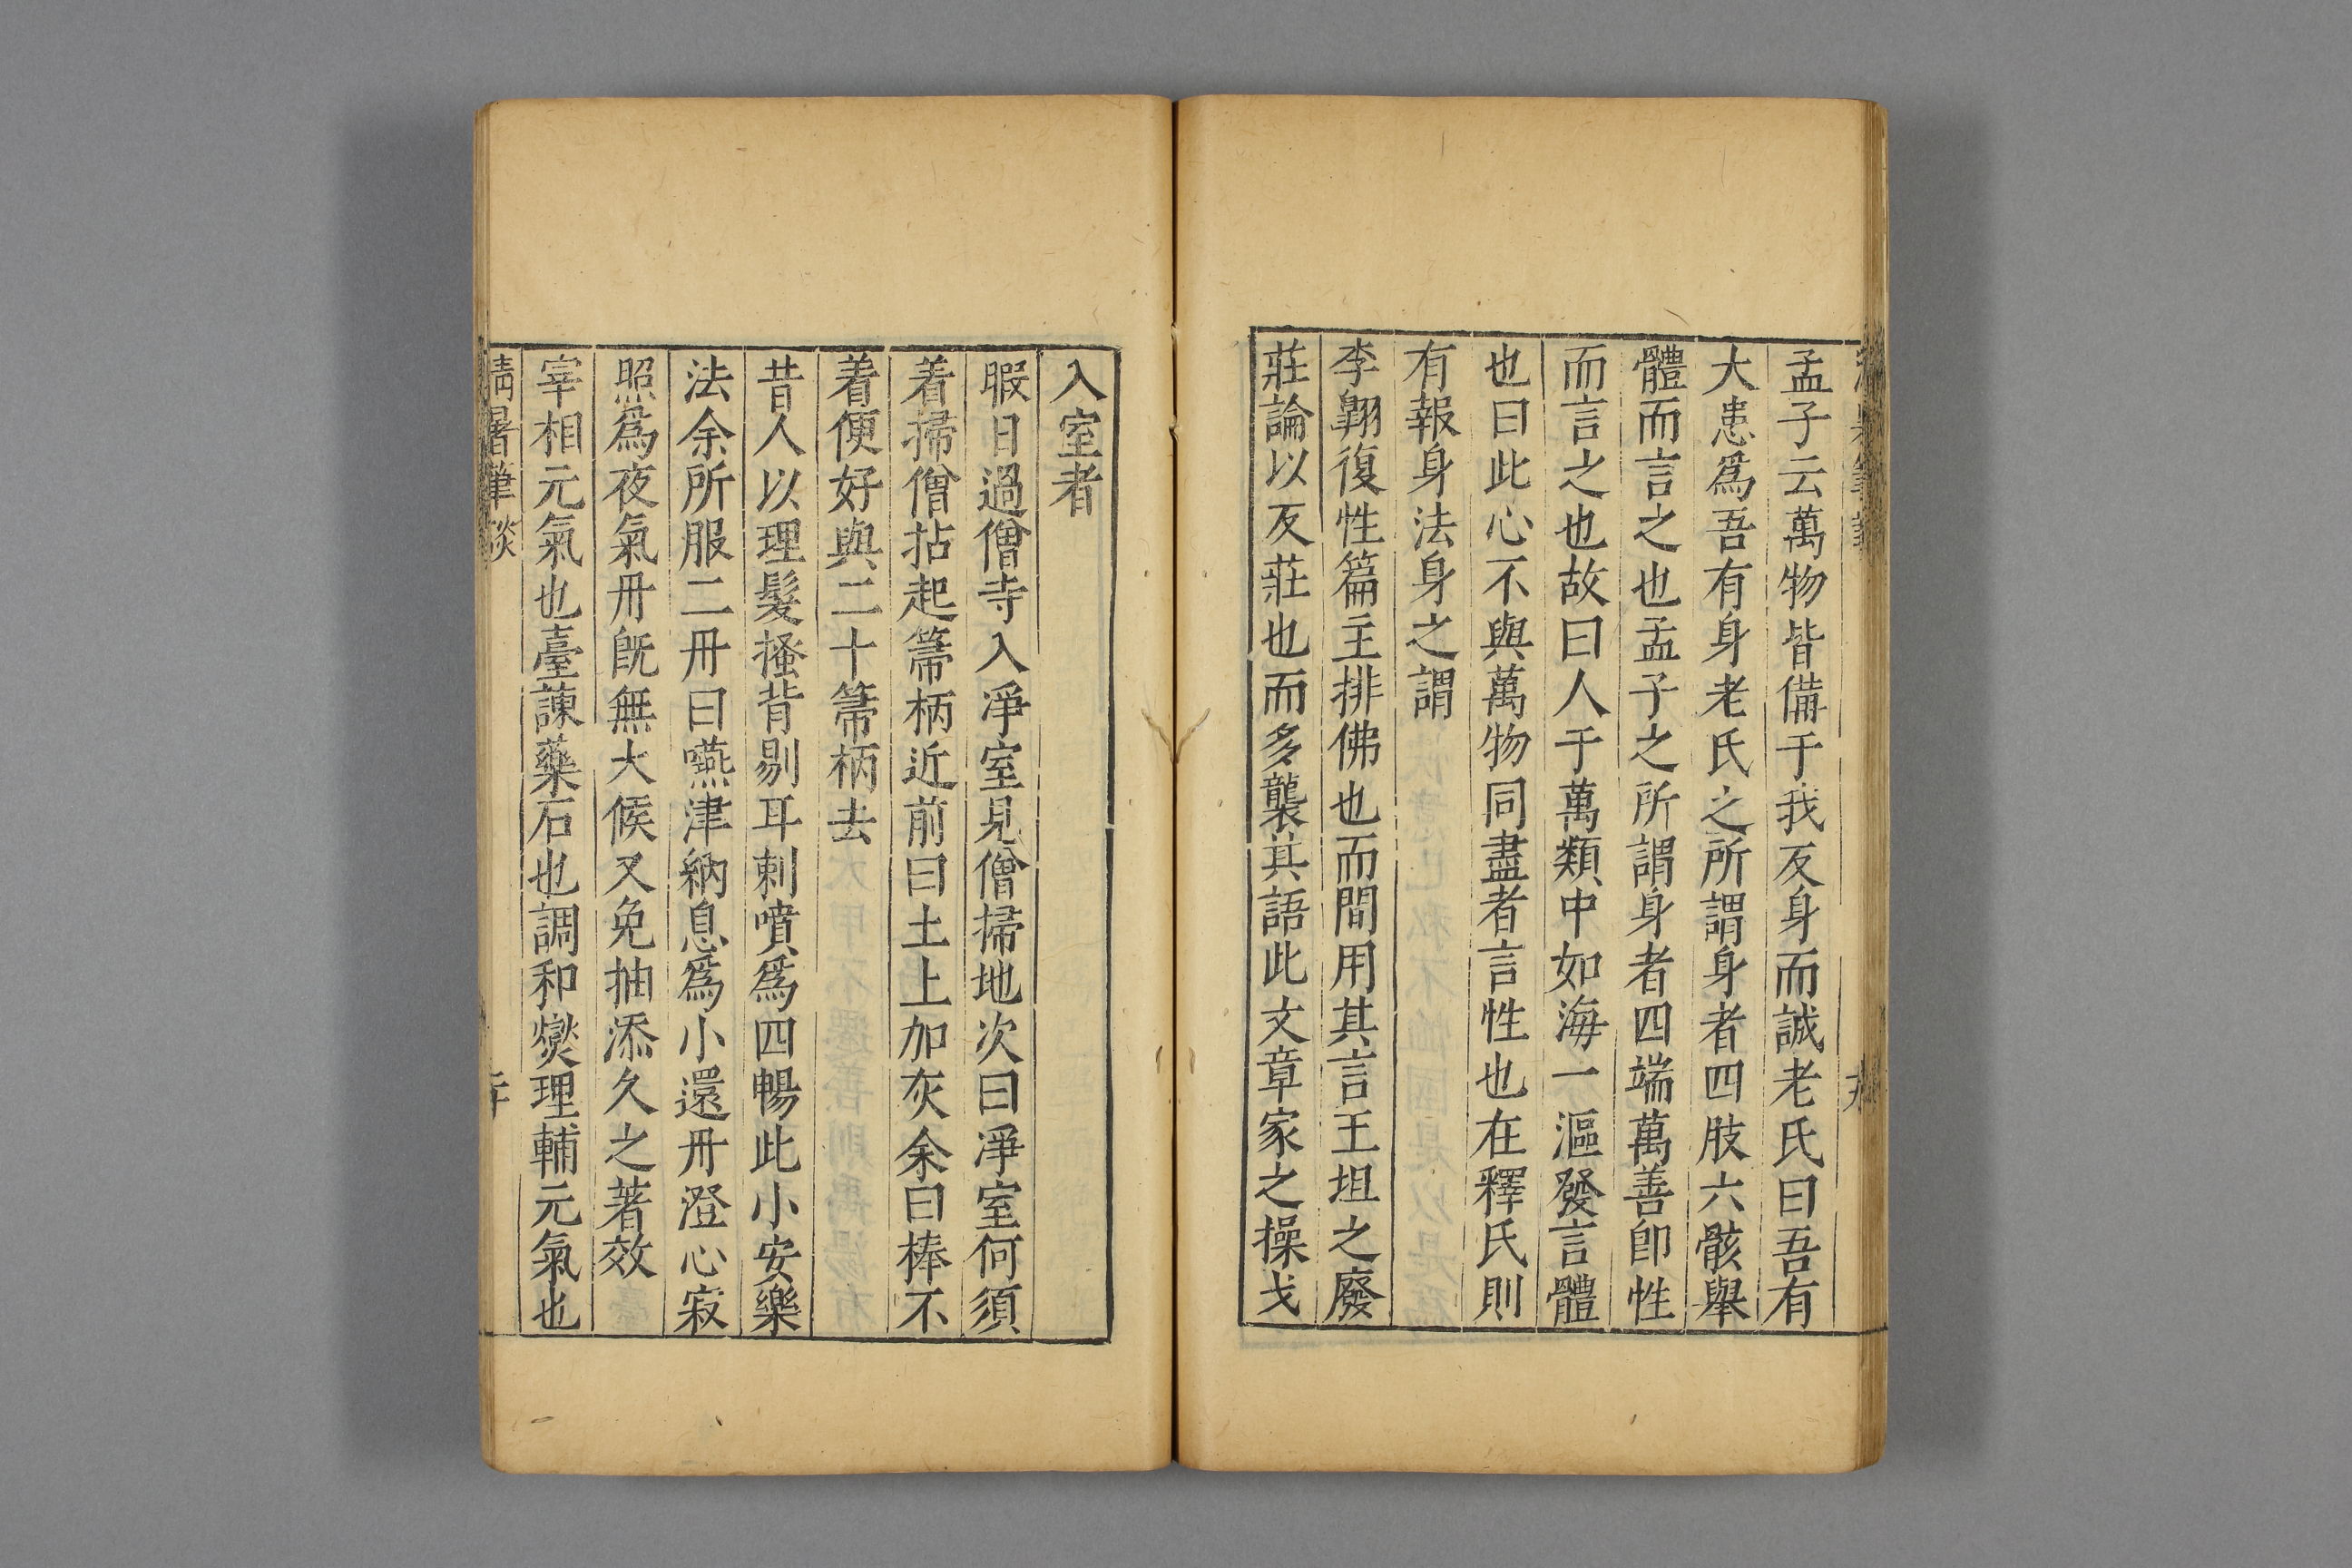 孟子云萬物皆備于我反身而誠老氏曰吾有
大患爲吾有身老氏之所謂身者四肢六骸舉
體而言之也孟子之所謂身者四端萬善卽性
而言之也故曰人于萬類中如海一漚發言體
也曰此心不與萬物同盡者言性也在釋氏則
有報身法身之謂
李翺復性篇主排佛也而間用其言王坦之廢
莊論以反莊也而多襲其語此文章家之操戈
入室者
暇日過僧寺入淨室見僧掃地次曰淨室何須
着掃僧拈起箒柄近前曰土上加灰余曰棒不
着便好與二十箒柄去
昔人以理髮搔背剔耳刺噴爲四暢此小安樂
法余所服二丹曰嚥津納息爲小還丹澄心寂
照爲夜氣丹旣無大候又免抽添久之著效
宰相元氣也臺諫藥石也調和燮理輔元氣也
清暑筆談